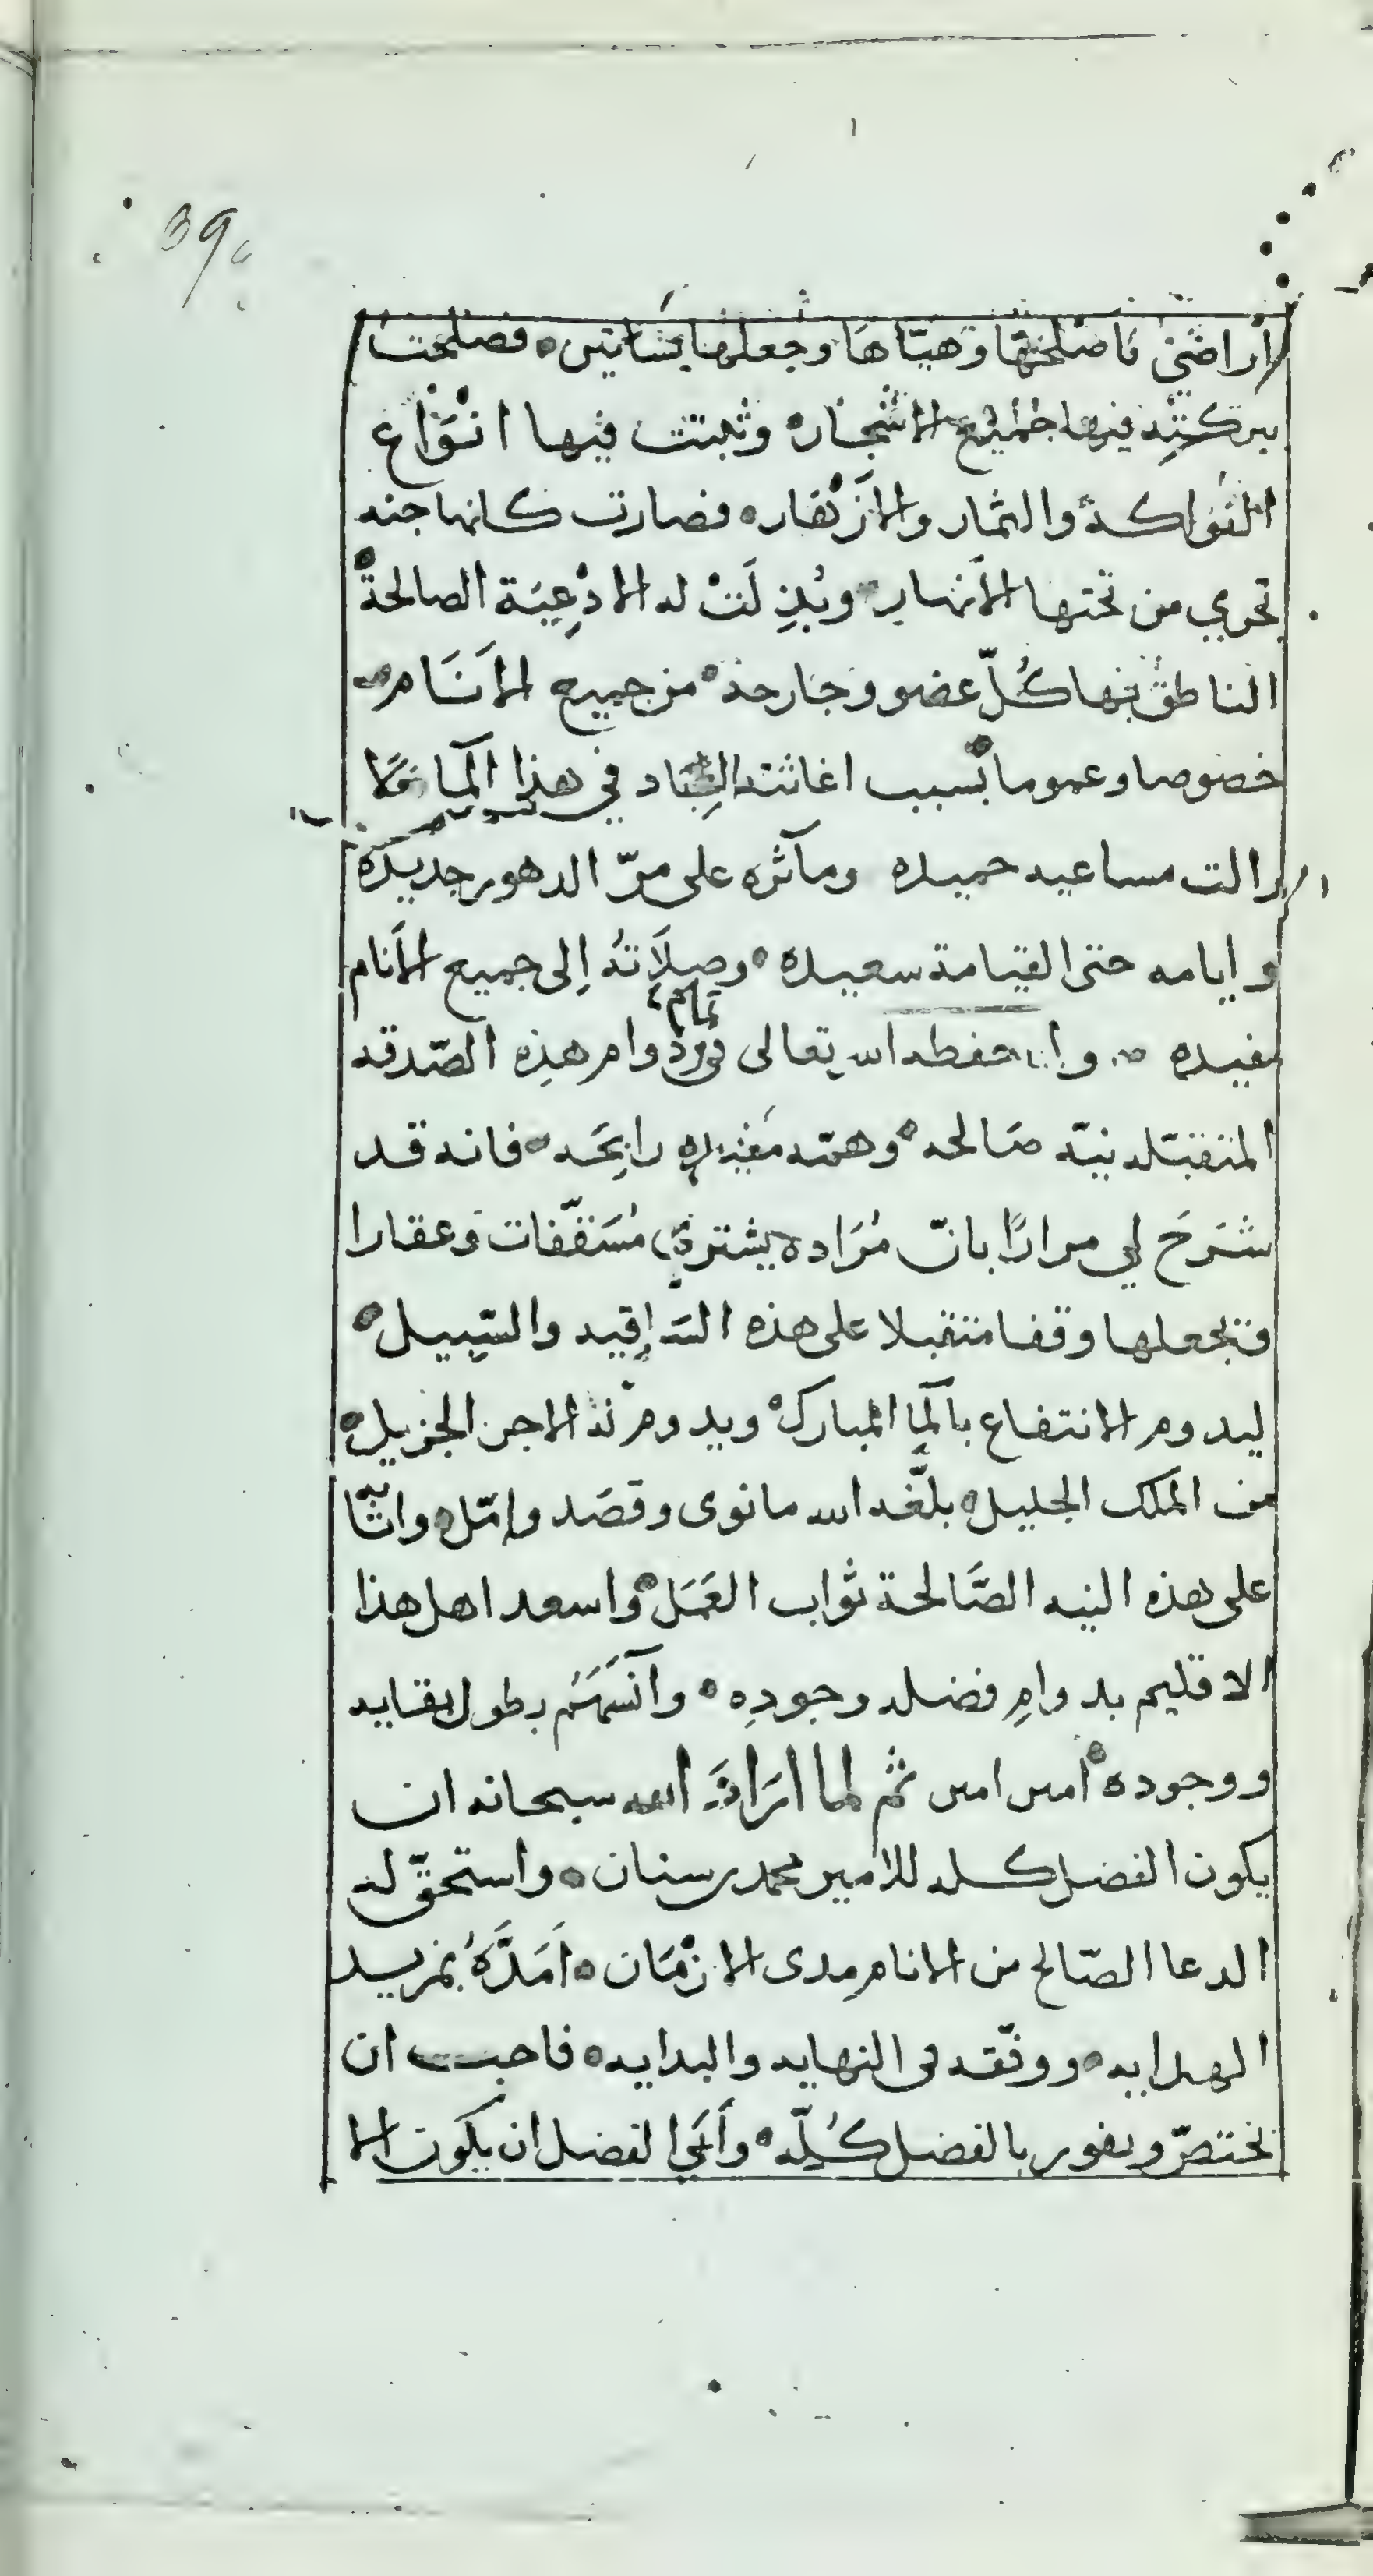 39
اراضي فاصلحها وهيّاها وجعلها بساتين فصلحت
ببركته فيها جميع الاشجار وثبتت فيها انواع
الفواكه والثمار والأزهار فصارت كانها جنه
تجري من تحتها الأنهار وبُذِلَتْ له الادْعِيَة الصالحة
الناطق بها كُلّ عضو وجارحة من جميع الأَنَام
خصوصا وعموما بسبب اغاثته العباد في هذا المآ فلا
زالت مساعيه حميده ومآثره على مرّ الدهور جديدة
وايامه حتى القيامة سعيده وصِلَاتهُ إلى جميع الأنام
مفيده حفظه الله تعالى دوام هذِه الصّدقه
تمام
المتقبّله نيّه صَالحه وهمّه رابحَه فانه قد
شَرَحَ لي مرارًا بانّ مُرَاده يشتري مُسَقّفات وعقارا
فيجعلها وقفا متقبلا على هذه السّاقيه والسّبيل
ليدوم الانتفاع بالمآ المبارك ويدوم له الاجر الجزيل
من الملك الجليل بلّغه الله ما نوى وقصَد وامّل واثابه
على هذه النيه الصَّالحة ثواب العَمَل واسعد اهل هذا
الاقليم بدوامِ فضله وجودِه وآنسَهُم بطول بقايه
ووجوده امين امين ثم لما ارَادَ الله سبحانه ان
يكون الفضل كله للامير محمد بن سنان واستحقّ له
الدعا الصّالح من الانام مدى الازْمَان اَمَدَّهُ بمزيد
الهدايه ووفّقه في النهايه والبدايه فاحب ان
يختصّ ويفوز بالفضل كُلّه وأبَى الفضل ان يكون الا